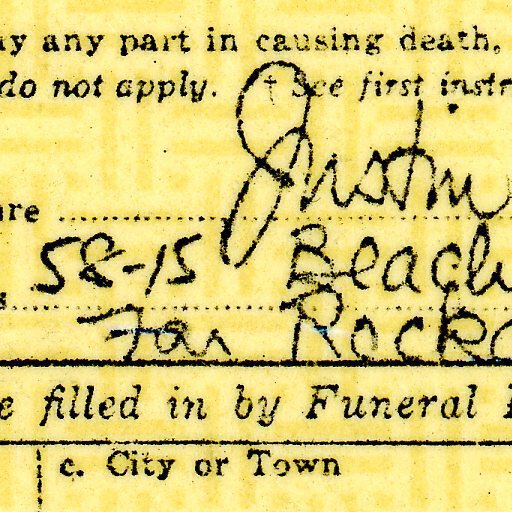 ay any part in causing death,
do not apply. † See first instr
are
Justin
58-15 Beach
Far Rocka
e filled in by Funeral
c. City or Town